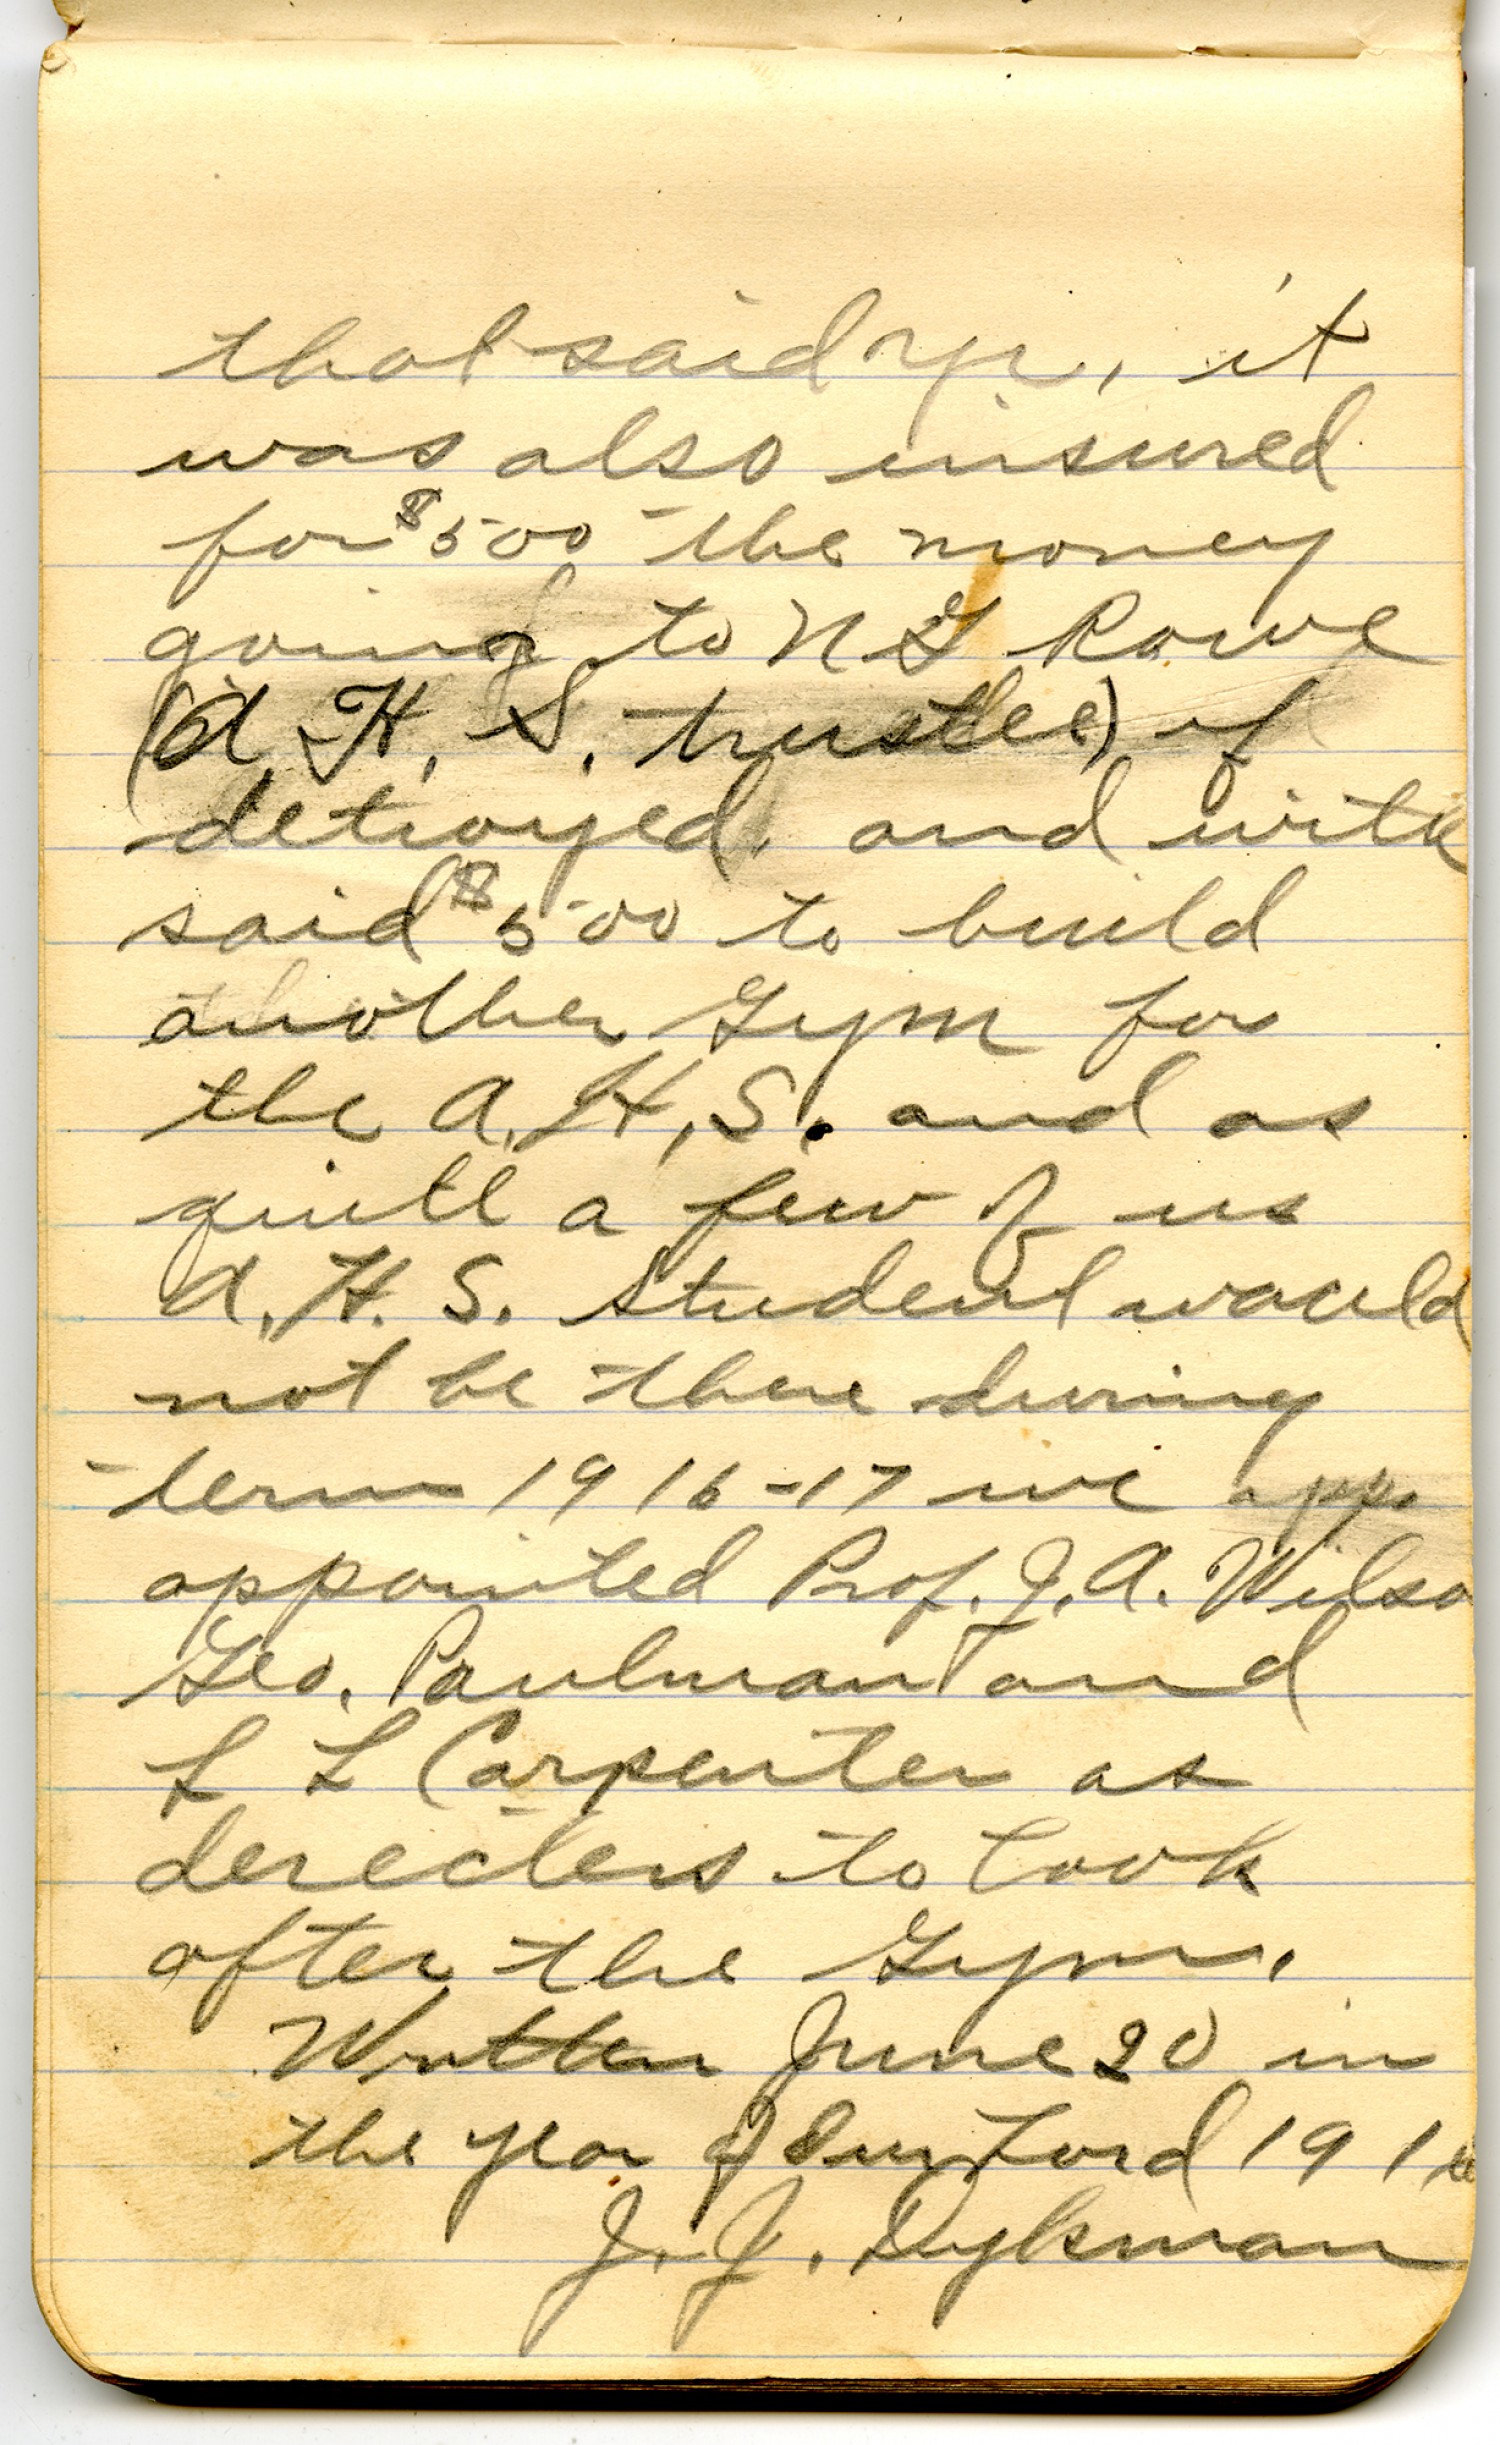 that said yr, it
was also insured
for $500 the money
going to N G Rowe
(A. H. S. trustee) if
detroyed. and with
said $500 to build
another Gym for
the A. H, S. and as
quite a few of us
A. H. S. Student would
not be there during
term 1916-17 we app.
appointed Prof. J. A. Wilso
Geo. Paulman and
L L Carpenter as
derecters to look
after the Gym.
Written June 20 in
the year of Our Lord 1916
J. J. Dykman